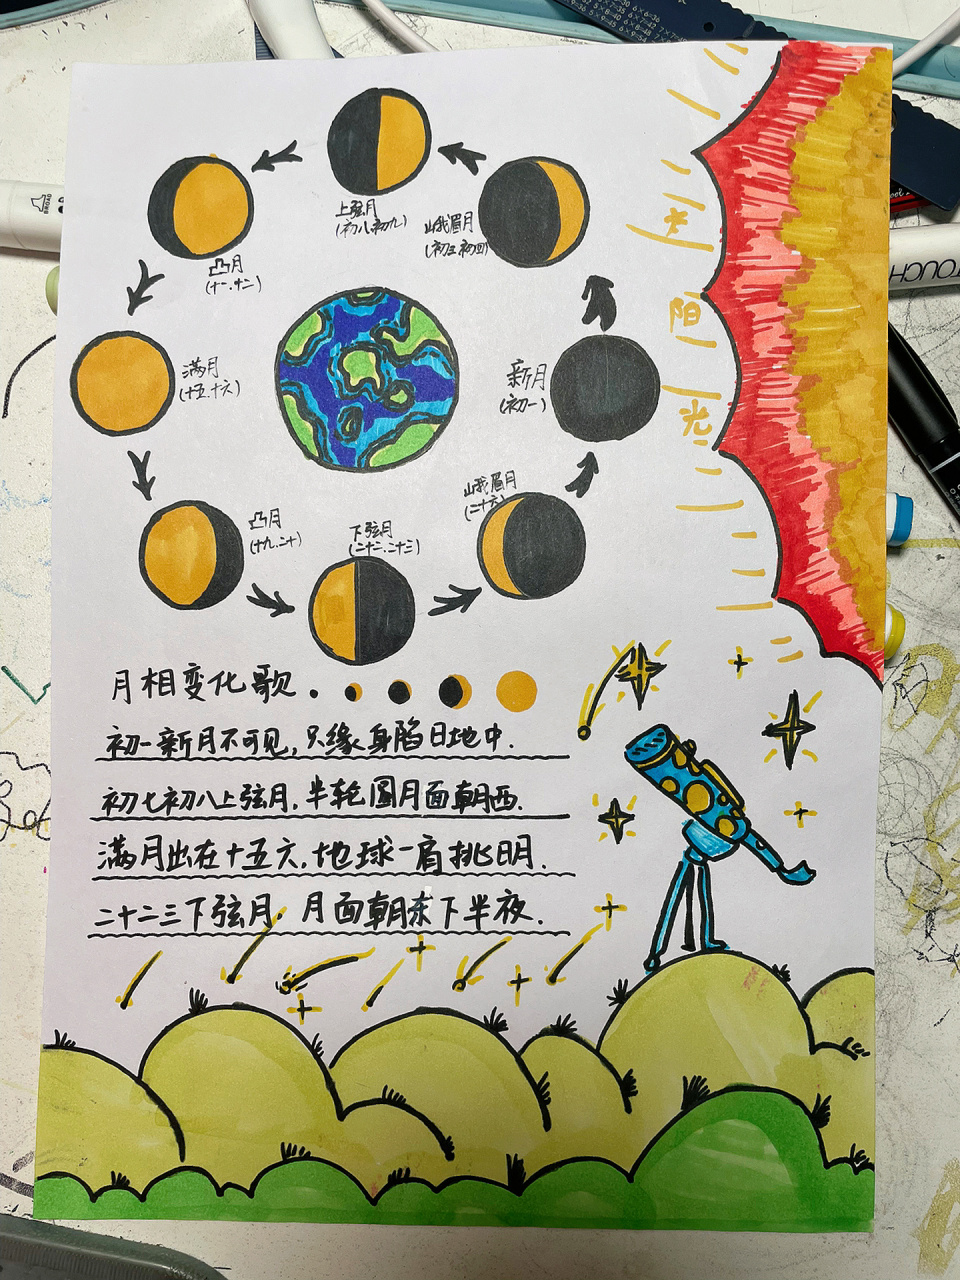 上弦月
(初八初九)
峨眉月
(初三初四)
凸月
(十一.十二)
太
阳
光
满月
(十五.十六)
新月
(初一)
凸月
(十九.二十)
下弦月
(二十二.二十三)
峨眉月
(二十六)
月相变化歌.
初一新月不可见,只缘身陷日地中.
初七初八上弦月,半轮圆月面朝西.
满月出在十五六,地球一肩挑日月.
二十二三下弦月,月面朝东下半夜.
TOUCH
BROAD